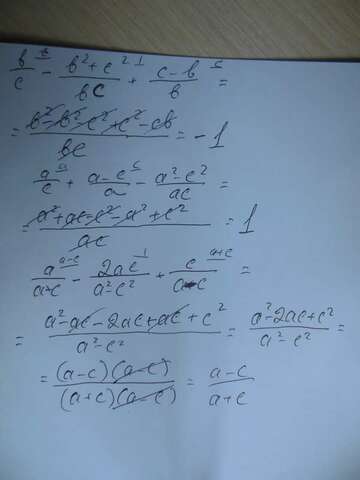 b/c^b - (b²+c²)/bc^1 + (c-b)/b^c =
= (b²-b²-c²+c²-cb)/bc = -1
a/c^a + (a-c)/a^c - (a²-c²)/ac =
= (a²+ac-c²-a²+c²)/ac = 1
a/(a+c)^(a-c) - 2ac/(a²-c²)^1 + c/(a-c)^(a+c) =
= (a²-ac-2ac+ac+c²)/(a²-c²) = (a²-2ac+c²)/(a²-c²) =
= (a-c)(a-c)/(a+c)(a-c) = (a-c)/(a+c)